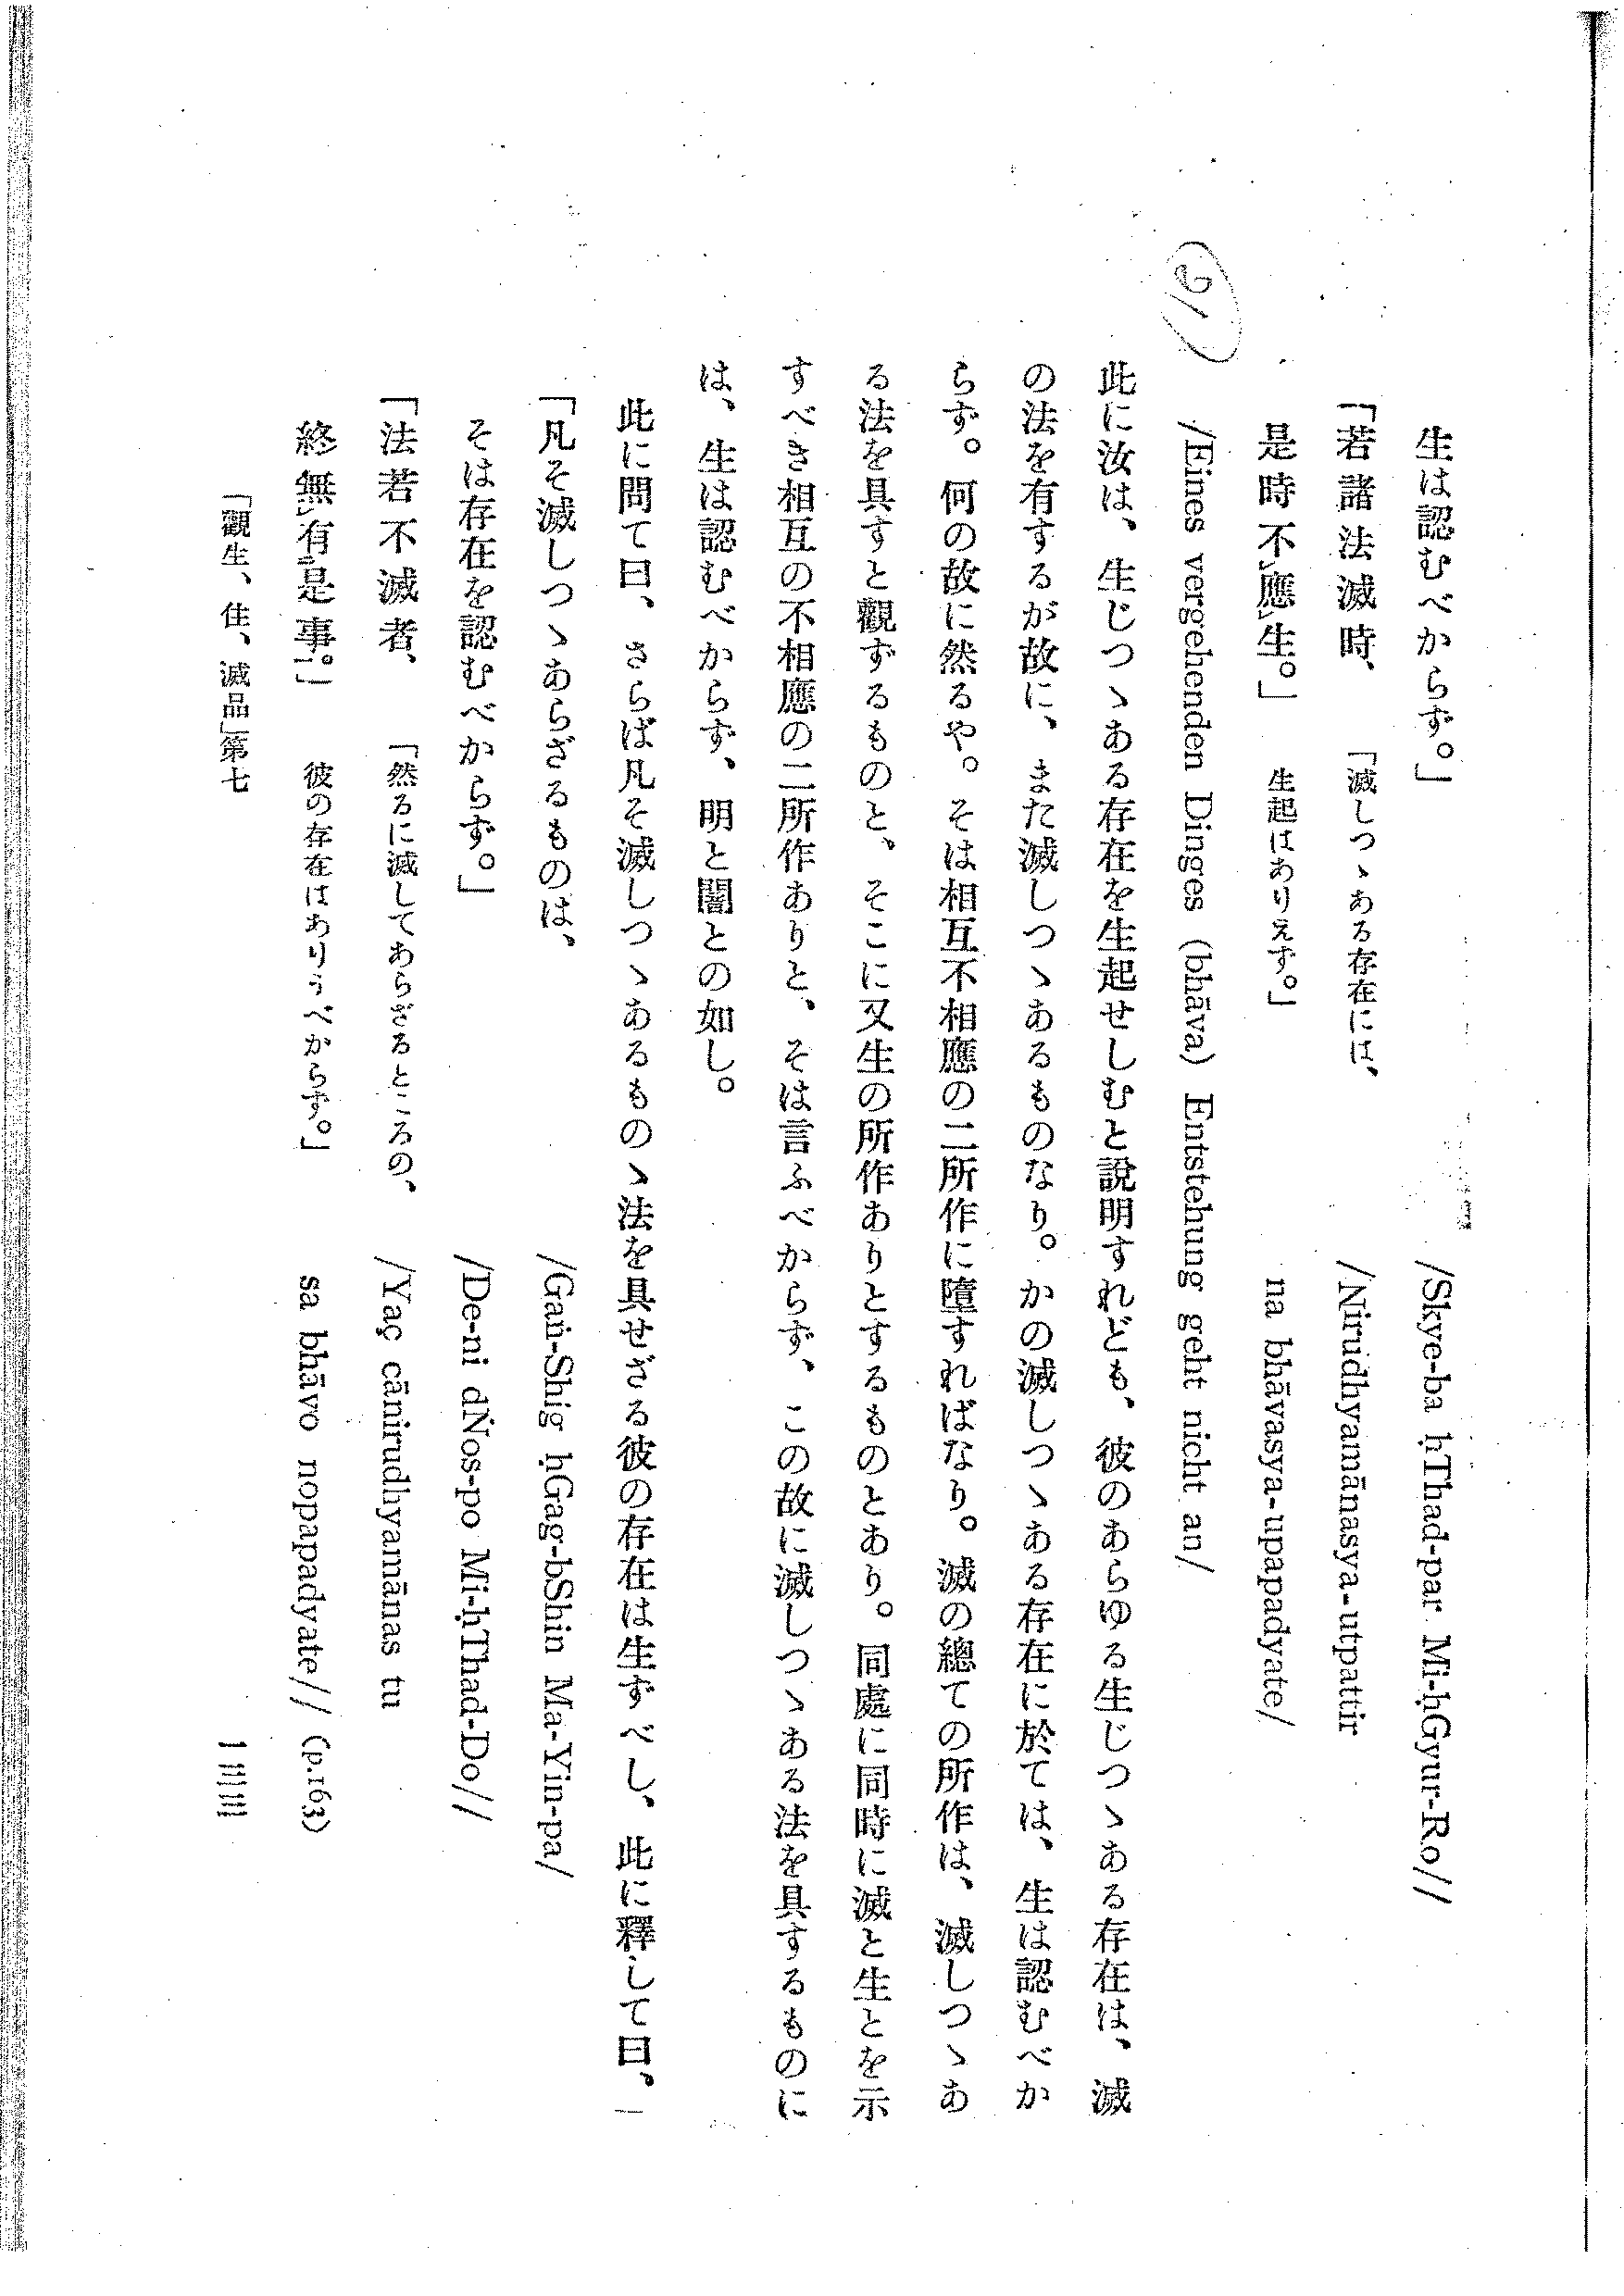 生は認むべからず。」 /Skye-ba ḥThad-par Mi-ḥGyur-Ro//
「若諸法滅時、 「滅しつゝある存在には、 /Nirudhyamānasya-utpattir
是時不レ應レ生。」 生起はありえず。」 na bhāvasya-upapadyate/
/Eines vergehenden Dinges (bhāva) Entstehung geht nicht an/
21)
此に汝は、生じつゝある存在を生起せしむと說明すれども、彼のあらゆる生じつゝある存在は、滅
の法を有するが故に、また滅しつゝあるものなり。かの滅しつゝある存在に於ては、生は認むべか
らず。何の故に然るや。そは相互不相應の二所作に墮すればなり。滅の總ての所作は、滅しつゝあ
る法を具すと觀ずるものと、そこに又生の所作ありとするものとあり。同處に同時に滅と生とを示
すべき相互の不相應の二所作ありと、そは言ふべからず、この故に滅しつゝある法を具するものに
は、生は認むべからず、明と闇との如し。
此に問て曰、さらば凡そ滅しつゝあるものゝ法を具せざる彼の存在は生ずべし、此に釋して曰、
「凡そ滅しつゝあらざるものは、 /Gaṅ-Shig ḥGag-bShin Ma-Yin-pa/
そは存在を認むべからず。」 /De-ni dṄos-po Mi-ḥThad-Do//
「法若不滅者、 「然るに滅してあらざるところの、 /Yaç cānirudhyamānas tu
終無レ有二是事一。」 彼の存在はありうべからず。」 sa bhāvo nopapadyate// (p.163)
「觀生、住、滅品」第七 一三三